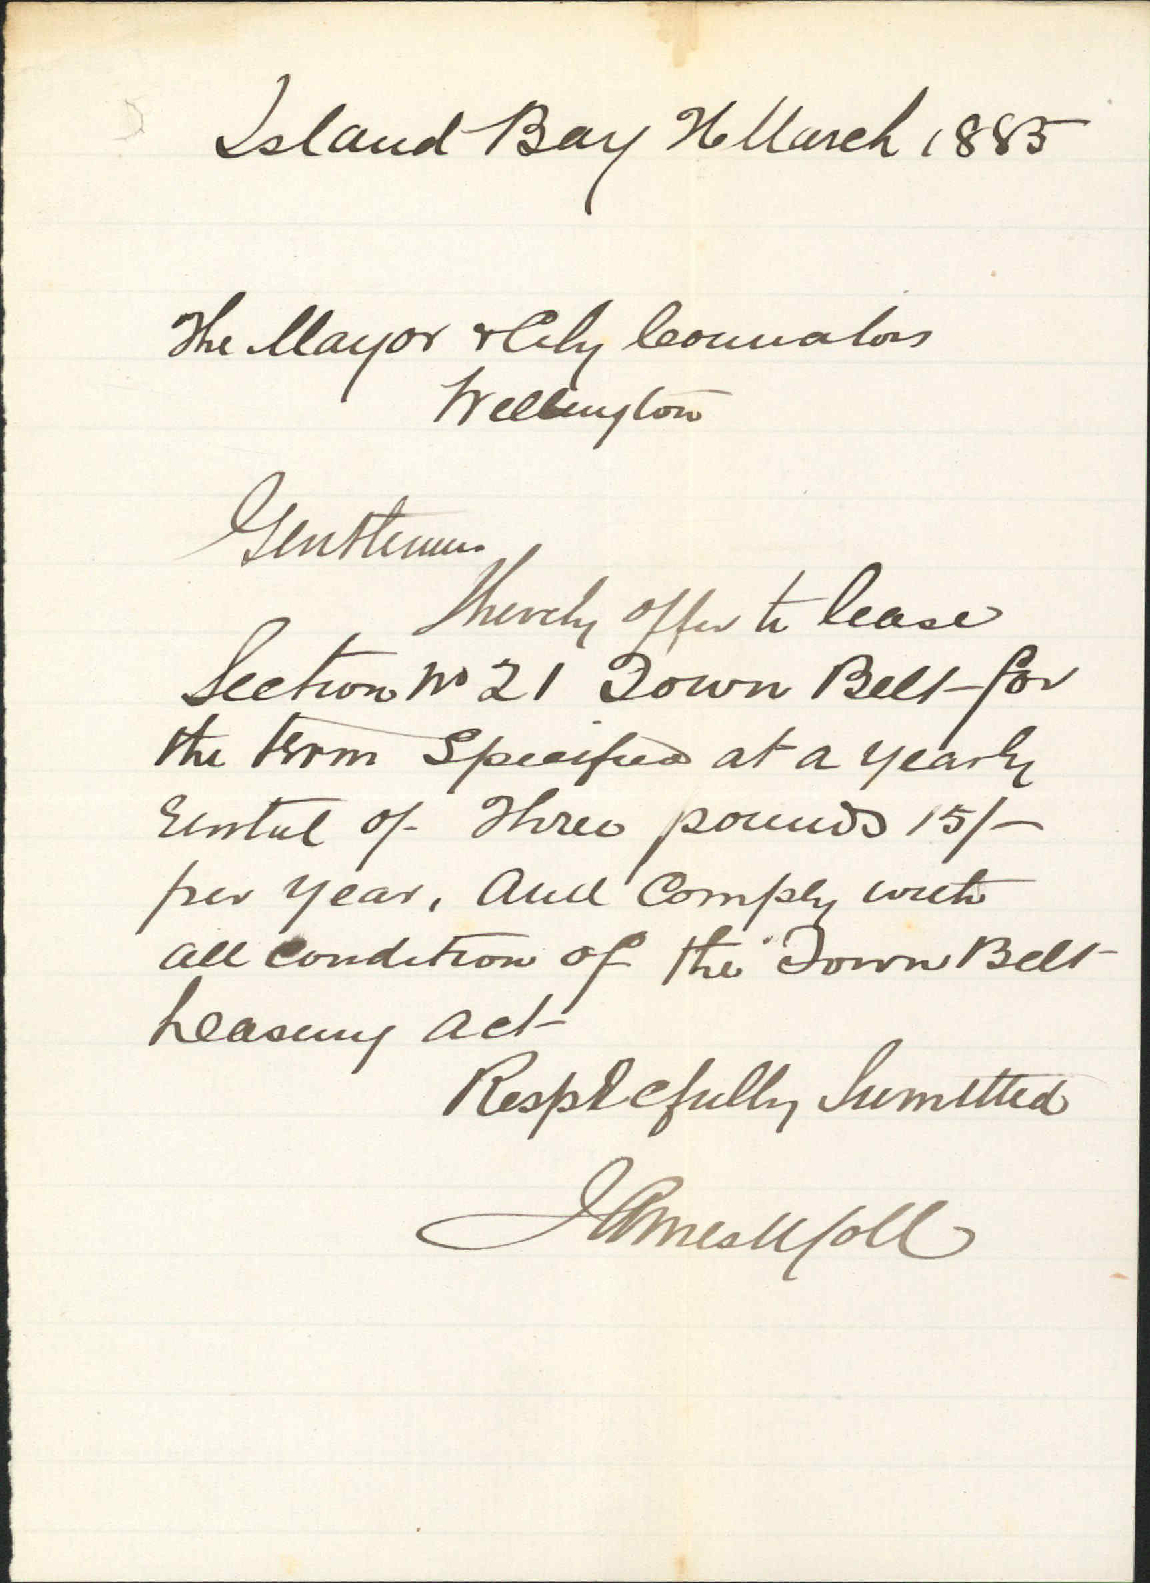 Island Bay 26 March 1885
The Mayor & City Counalors
Wellington
Gentlemen
I herely offer to lease
Section No 21 Town Belt for
the term Specified at a yearly
rental of Three pounds 15/-
per year, and Comply with
all condition of the Town Belt
Leasing act
Resptcfully Sumitted
James